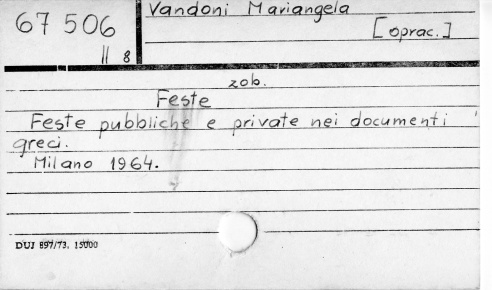 67 506
II 8
Vandoni Mariangela
[oprac.]
zob.
Feste
Feste pubbliche e private nei documenti
greci.
Milano 1964.
DUJ 897/73. 15000